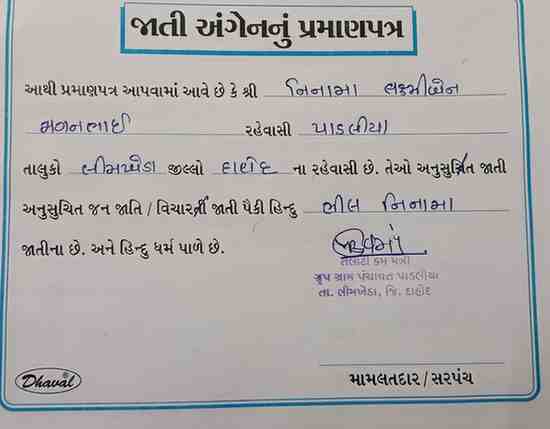 જાતી અંગેનનું પ્રમાણપત્ર
આથી પ્રમાણપત્ર આપવામાં આવે છે કે શ્રી નિનામા લક્ષ્મીબેન
મગનભાઈ રહેવાસી પાડલીયા
તાલુકો લીમખેડા જીલ્લો દાહોદ ના રહેવાસી છે. તેઓ અનુસુચિત જાતી
અનુસુચિત જન જાતિ / વિચારતી જાતી પૈકી હિન્દુ ભીલ નિનામા
જાતીના છે. અને હિન્દુ ધર્મ પાળે છે.
તલાટી કમ મંત્રી
ગ્રુપ ગ્રામ પંચાયત પાડલીયા
તા. લીમખેડા, જિ. દાહોદ
Dhaval®
મામલતદાર / સરપંચ